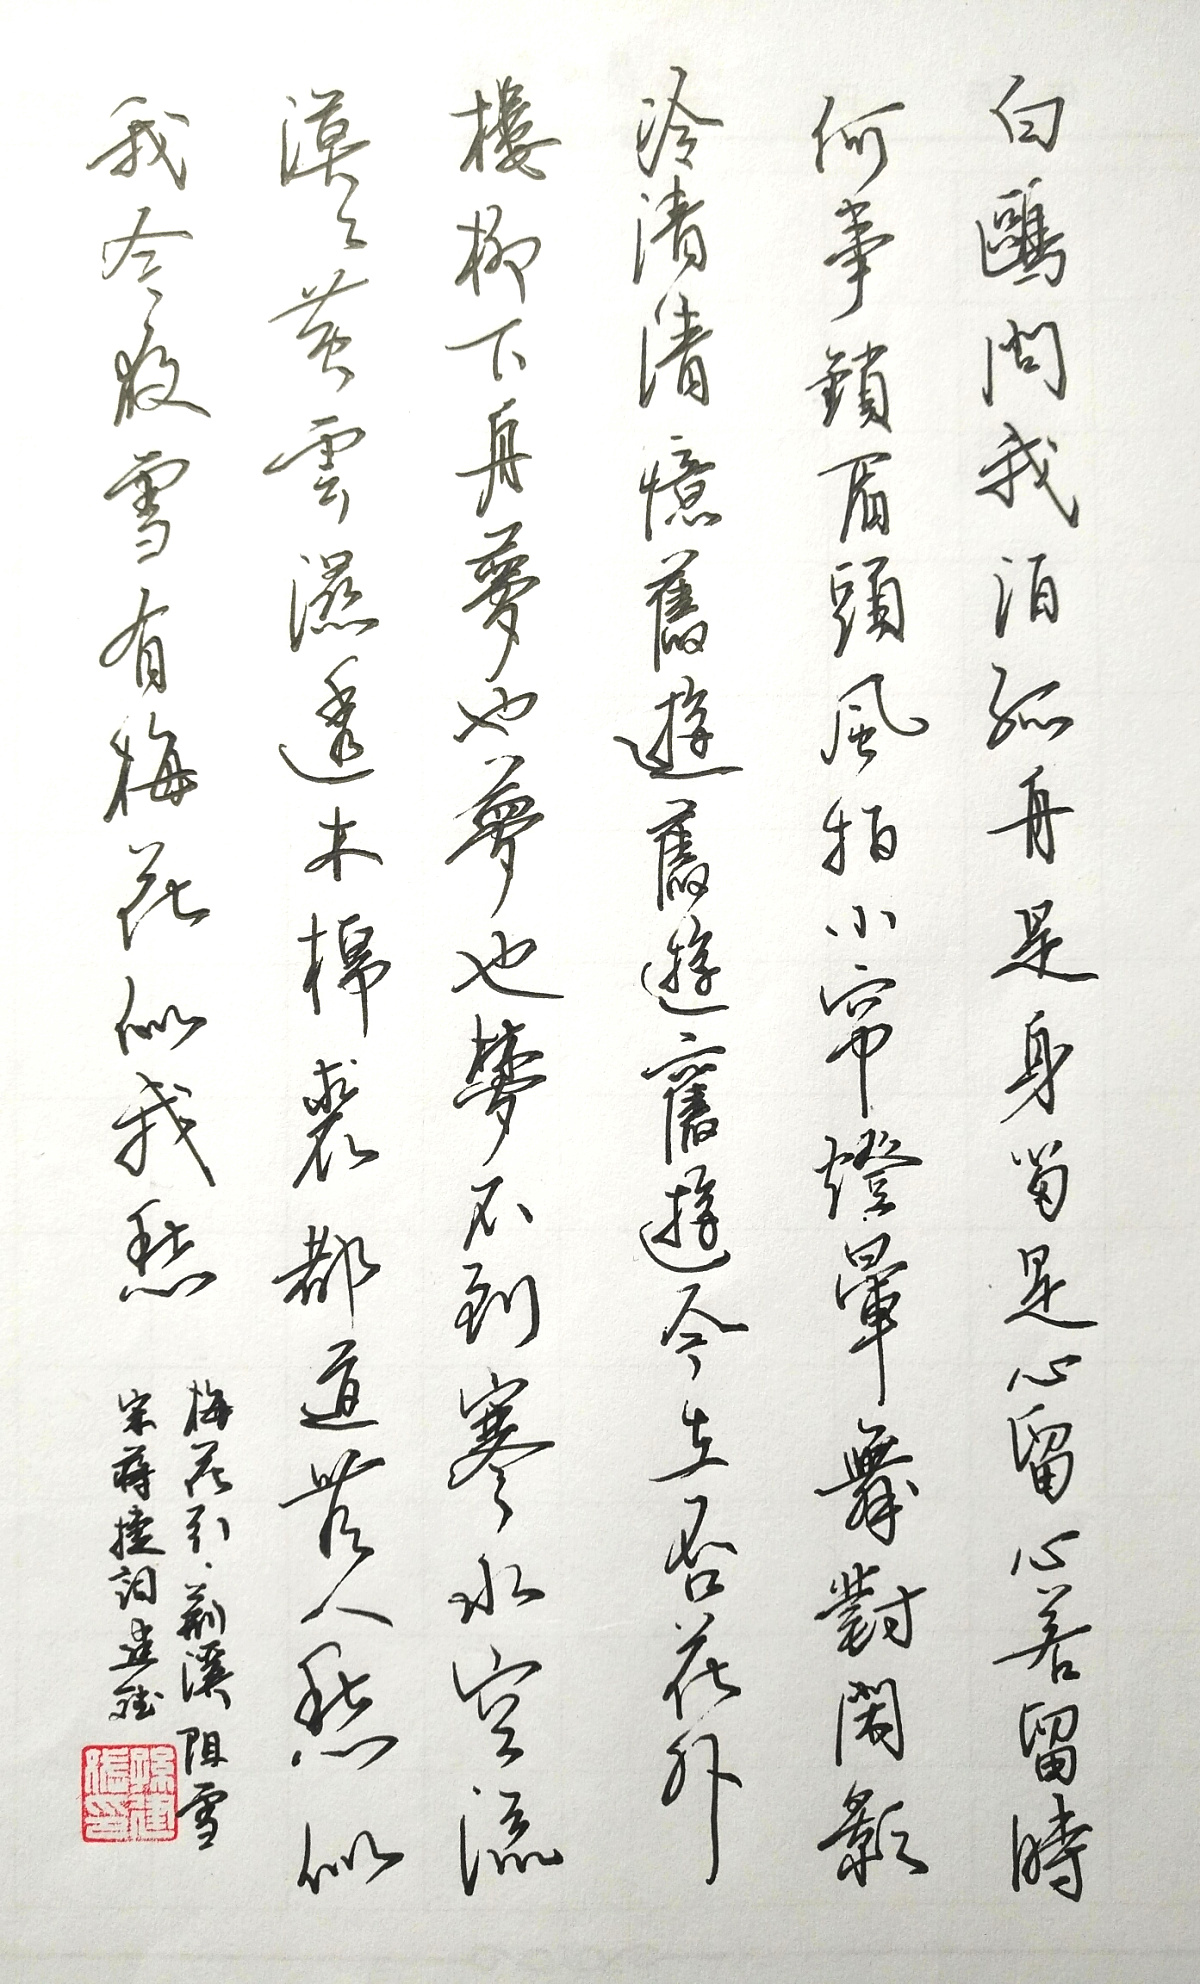 白鷗問我泊孤舟是身留是心留心若留時
何事鎖眉頭風拍小帘燈暈舞對閑影
冷清清憶舊遊舊遊舊遊今在否花外
樓柳下舟夢也夢也夢不到寒水空流
漠々黄雲濕透木棉裘都道無人愁似
我今夜雪有梅花似我愁
梅花引·荆溪阻雪
宋蔣捷詞建